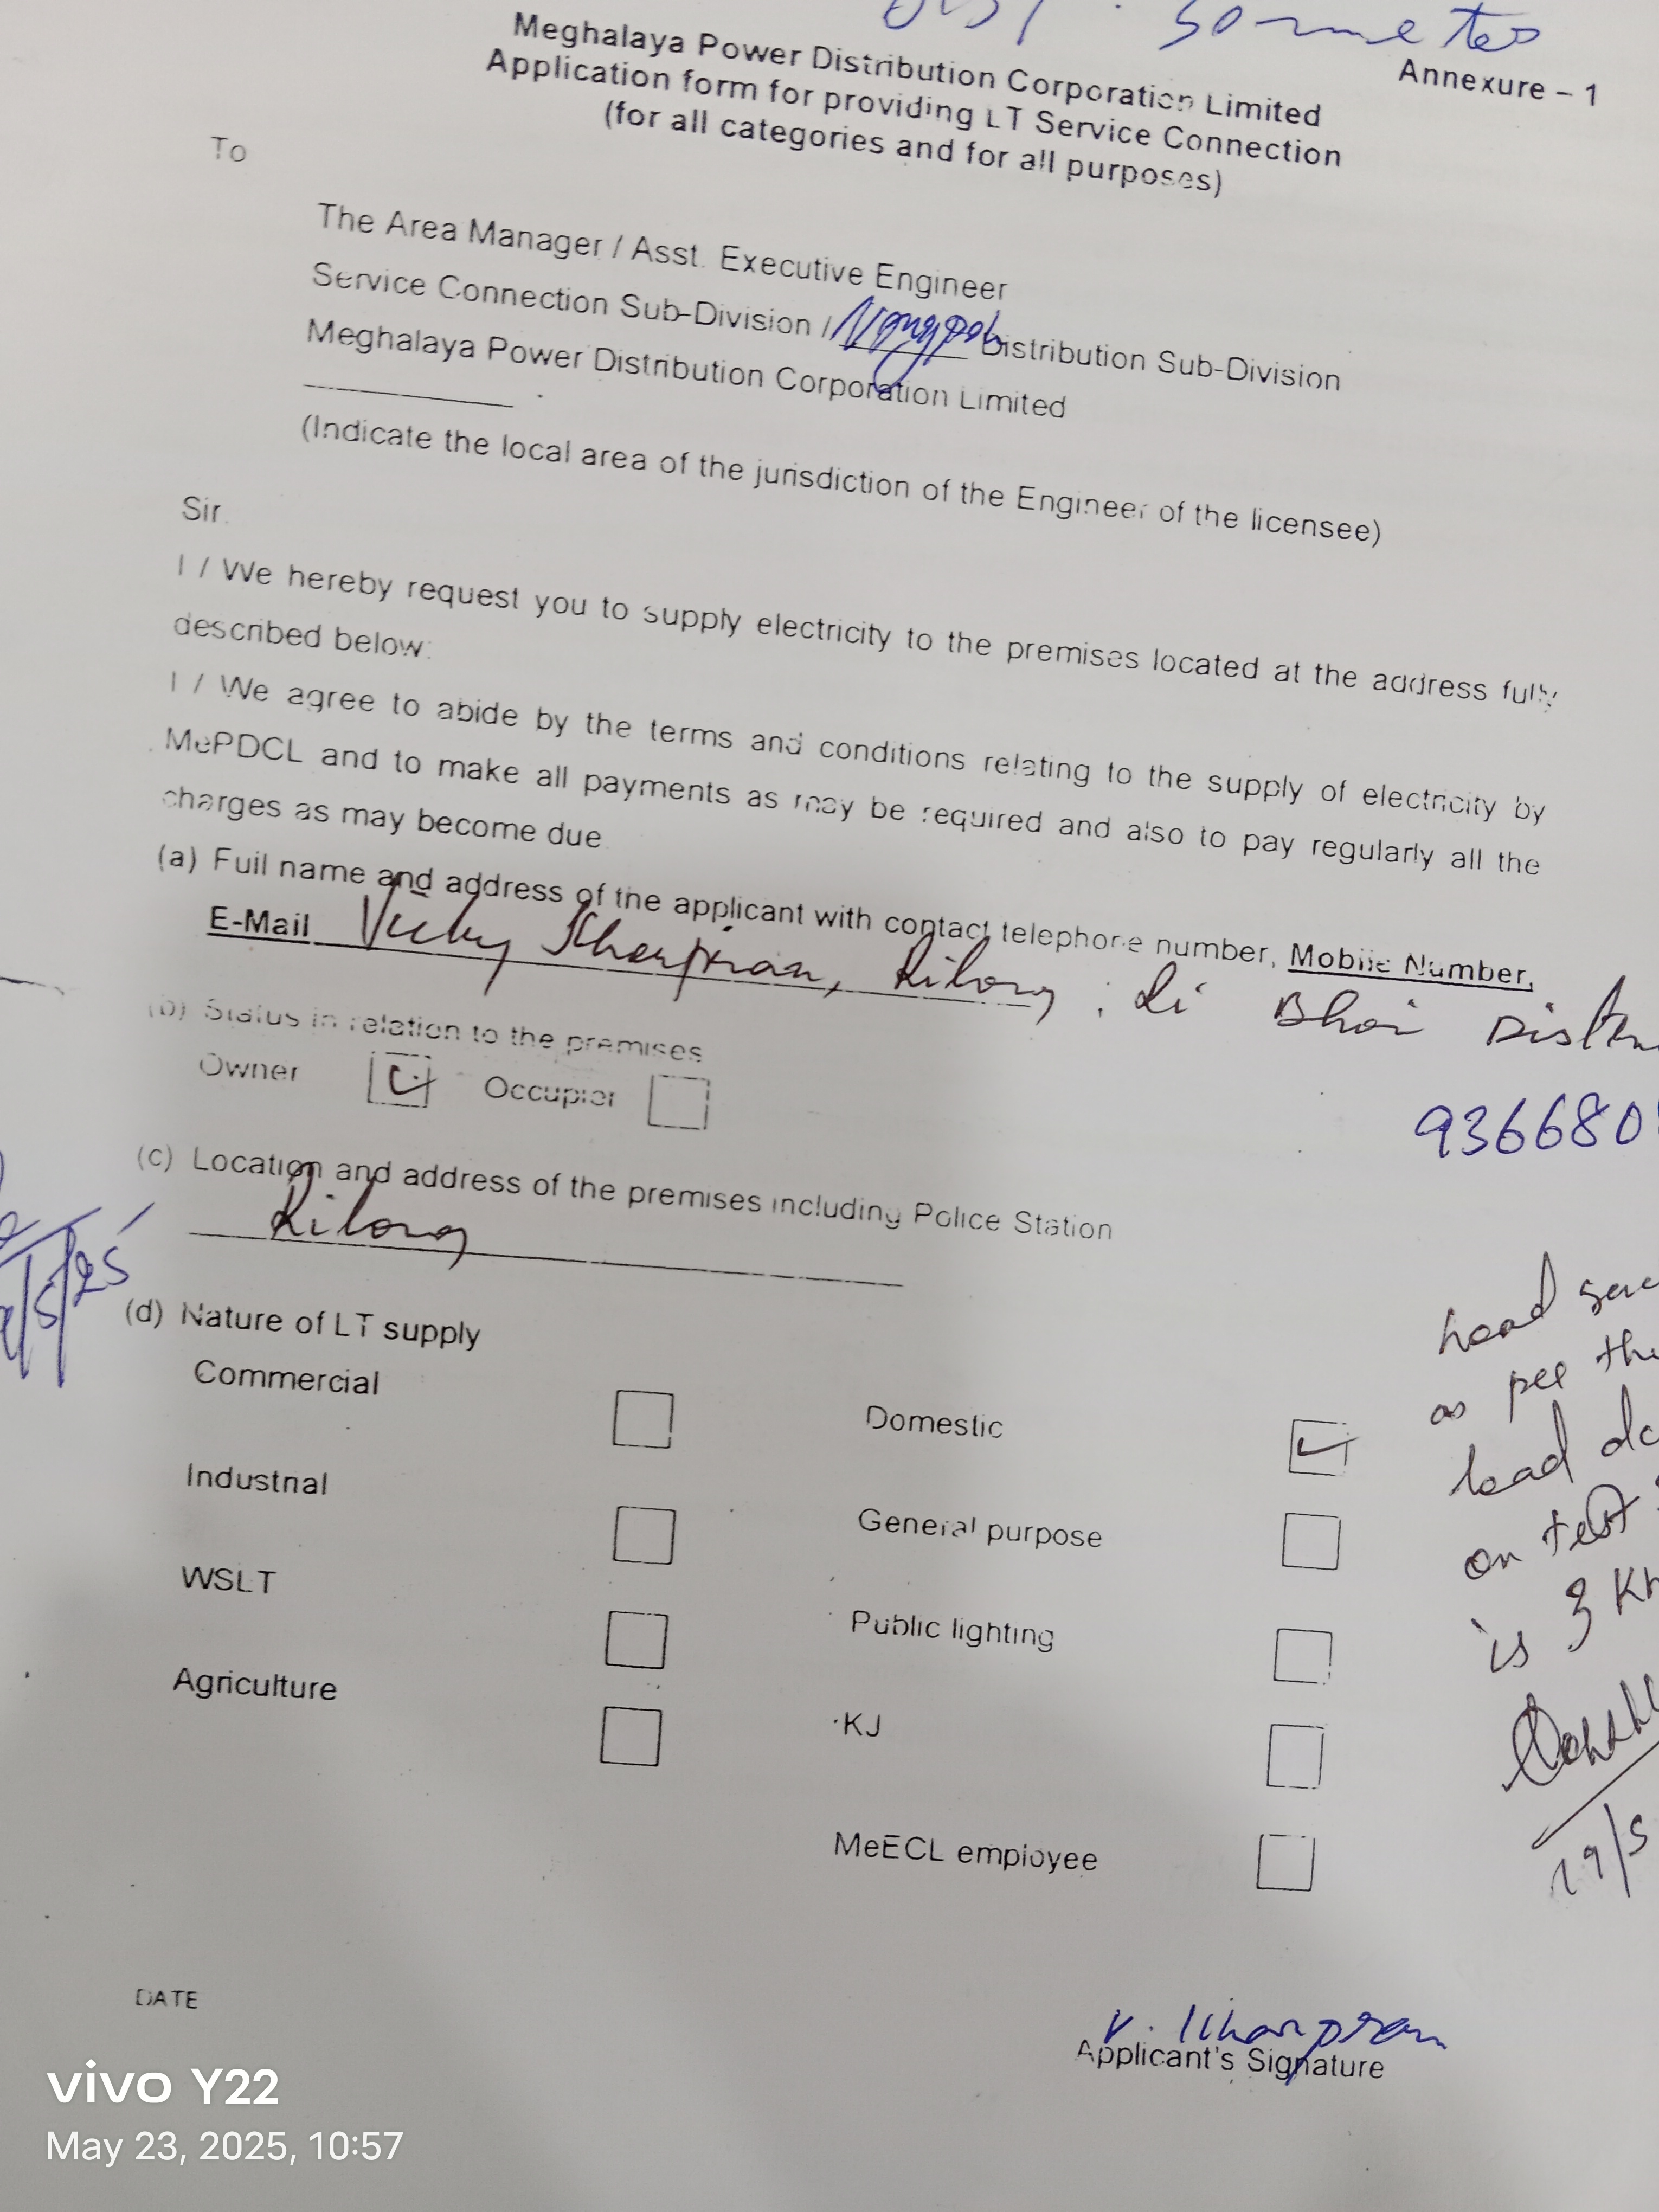 50 metes
Annexure – 1
Meghalaya Power Distribution Corporation Limited
Application form for providing LT Service Connection
(for all categories and for all purposes)
To
The Area Manager / Asst. Executive Engineer
Service Connection Sub-Division / Nongpoh Distribution Sub-Division
Meghalaya Power Distribution Corporation Limited
(Indicate the local area of the jurisdiction of the Engineer of the licensee)
Sir
I / We hereby request you to supply electricity to the premises located at the address fully
described below:
I / We agree to abide by the terms and conditions relating to the supply of electricity by
MePDCL and to make all payments as may be required and also to pay regularly all the
charges as may become due
(a) Full name and address of the applicant with contact telephone number, Mobile Number,
E-Mail Vicky Kharpran, Kilong, Ri Bhoi
(b) Status in relation to the premises
Owner Occupier
936680
(c) Location and address of the premises including Police Station
Kilong
(d) Nature of LT supply
Commercial
Domestic
Industrial
General purpose
WSLT
Public lighting
Agriculture
KJ
MeECL employee
as per
load
on test
is 3
19/5
DATE
V. Kharpran
Applicant's Signature
vivo Y22
May 23, 2025, 10:57